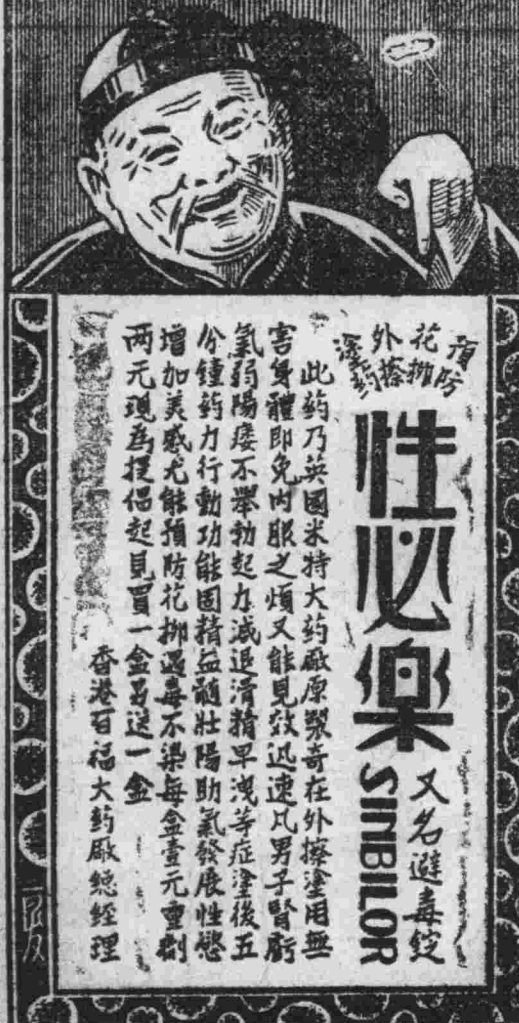 預防
花柳
外擦
塗药
性必樂
SINBILOR
又名避毒錠
此药乃英國米特大药厰原製奇在外擦塗用無
害身體即免内服之煩又能見效迅速凡男子腎虧
氣弱陽痿不舉勃起力减退滑精早洩等症塗後五
分鐘药力行動功能固精益髓壯陽助氣發展性慾
增加美感尤能預防花柳遇毒不染每盒壹元重劑
两元現為提倡起見買一盒另送一盒
香港百福大药厰總經理